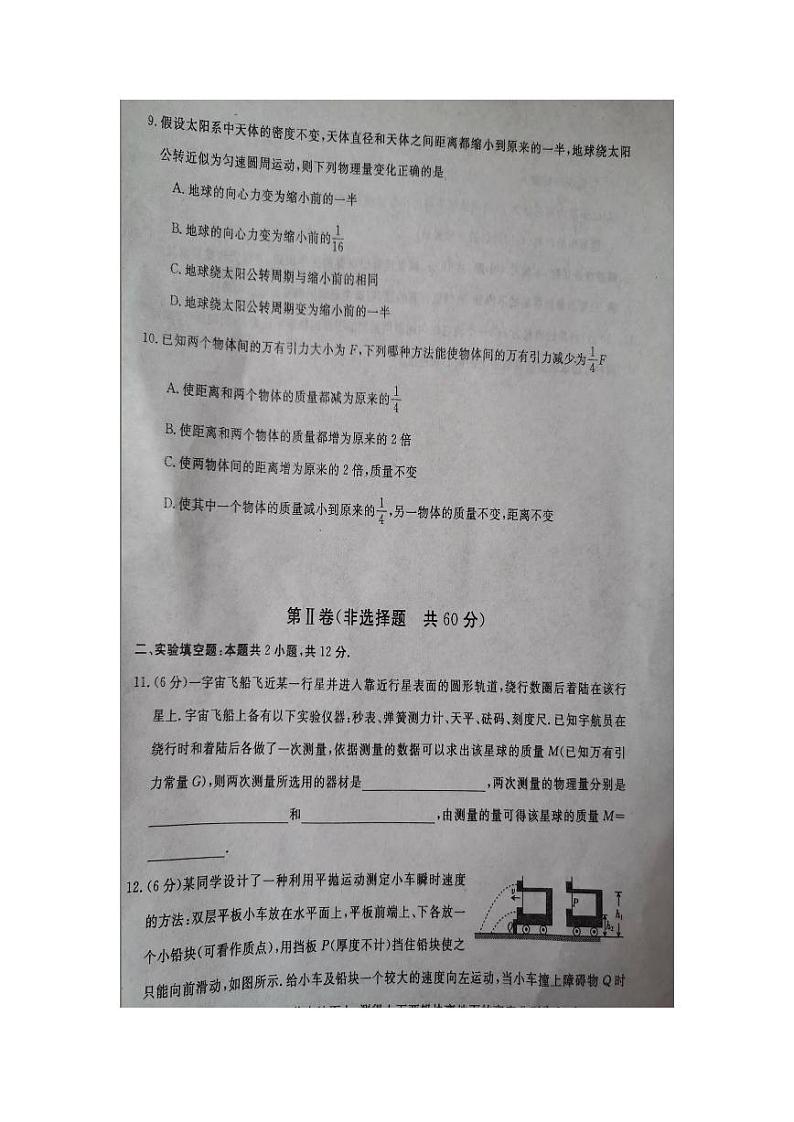 9.假设太阳系中天体的密度不变,天体直径和天体之间距离都缩小到原来的一半,地球绕太阳
公转近似为匀速圆周运动,则下列物理量变化正确的是
A.地球的向心力变为缩小前的一半
B.地球的向心力变为缩小前的1/16
C.地球绕太阳公转周期与缩小前的相同
D.地球绕太阳公转周期变为缩小前的一半
10.已知两个物体间的万有引力大小为F,下列哪种方法能使物体间的万有引力减少为1/4F
A.使距离和两个物体的质量都减为原来的1/4
B.使距离和两个物体的质量都增为原来的2倍
C.使两物体间的距离增为原来的2倍,质量不变
D.使其中一个物体的质量减小到原来的1/4,另一物体的质量不变,距离不变
第Ⅱ卷(非选择题 共60分)
二、实验填空题:本题共2小题,共12分.
11.(6分)一宇宙飞船飞近某一行星并进入靠近行星表面的圆形轨道,绕行数圈后着陆在该行
星上.宇宙飞船上备有以下实验仪器:秒表、弹簧测力计、天平、砝码、刻度尺.已知宇航员在
绕行时和着陆后各做了一次测量,依据测量的数据可以求出该星球的质量M(已知万有引
力常量G),则两次测量所选用的器材是________________,两次测量的物理量分别是
__________________和__________________,由测量的量可得该星球的质量M=
__________.
12.(6分)某同学设计了一种利用平抛运动测定小车瞬时速度
的方法:双层平板小车放在水平面上,平板前端上、下各放一
个小铅块(可看作质点),用挡板P(厚度不计)挡住铅块使之
只能向前滑动,如图所示.给小车及铅块一个较大的速度向左运动,当小车撞上障碍物Q时
v
P
Q
h₁
h₂